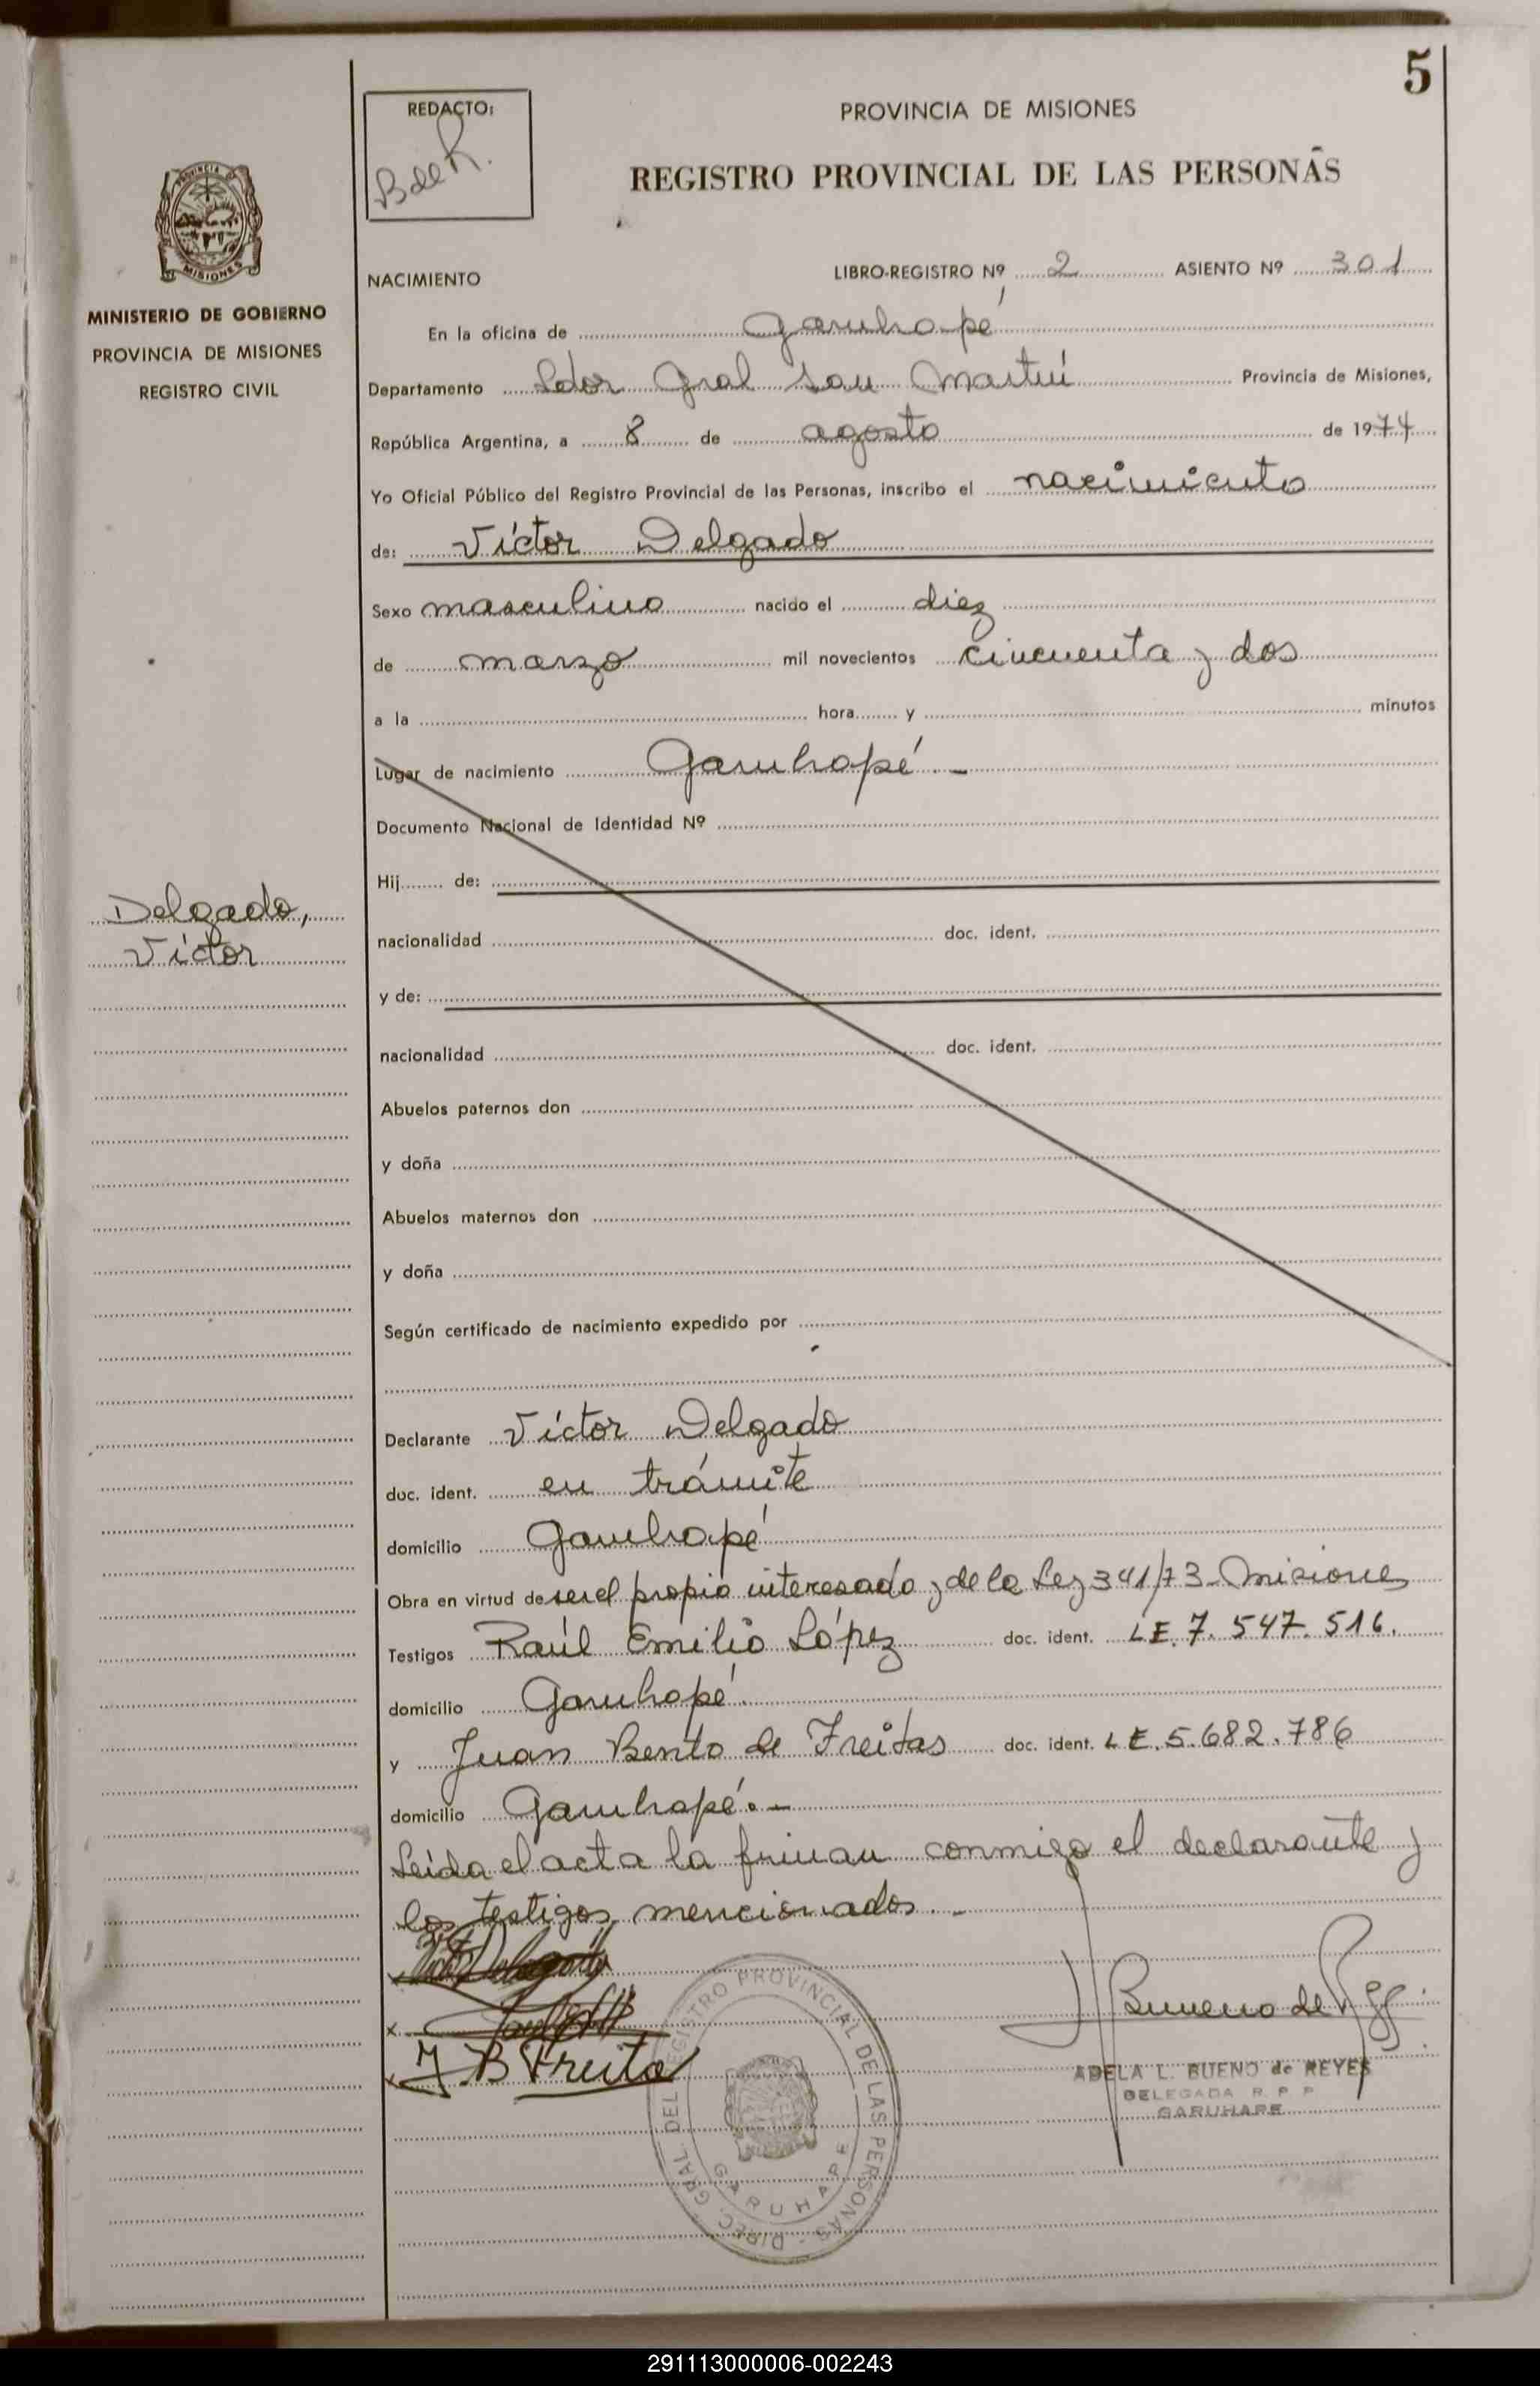 5
REDACTO:
B de R.
PROVINCIA DE MISIONES
REGISTRO PROVINCIAL DE LAS PERSONAS
PROVINCIA DE
MISIONES
MINISTERIO DE GOBIERNO
PROVINCIA DE MISIONES
REGISTRO CIVIL
NACIMIENTO
LIBRO-REGISTRO Nº 2 ASIENTO Nº 301
En la oficina de Garuhapé
Departamento Ldor Gral San Martín Provincia de Misiones,
República Argentina, a 8 de agosto de 1974
Yo Oficial Público del Registro Provincial de las Personas, inscribo el nacimiento
de: Víctor Delgado
Sexo masculino nacido el diez
de marzo mil novecientos cincuenta y dos
a la hora y minutos
Lugar de nacimiento Garuhapé.-
Documento Nacional de Identidad Nº
Hij de:
Delgado,
Víctor
nacionalidad doc. ident.
y de:
nacionalidad doc. ident.
Abuelos paternos don
y doña
Abuelos maternos don
y doña
Según certificado de nacimiento expedido por
Declarante Víctor Delgado
doc. ident. en trámite
domicilio Garuhapé
Obra en virtud de ser el propio interesado y de la Ley 341/73 - Misiones
Testigos Raúl Emilio López doc. ident. LE. 7.547.516.
domicilio Garuhapé.
y Juan Bento de Freitas doc. ident. LE. 5.682.786
domicilio Garuhapé.-
Leída el acta la firman conmigo el declarante y
los testigos mencionados.-
x Delgado
x
x J. B Freita
Bueno de R
ADELA L. BUENO de REYES
DELEGADA R. P. P
GARUHAPE
DIREC. GRAL. DEL REGISTRO PROVINCIAL DE LAS PERSONAS -
GARUHAPE
291113000006-002243